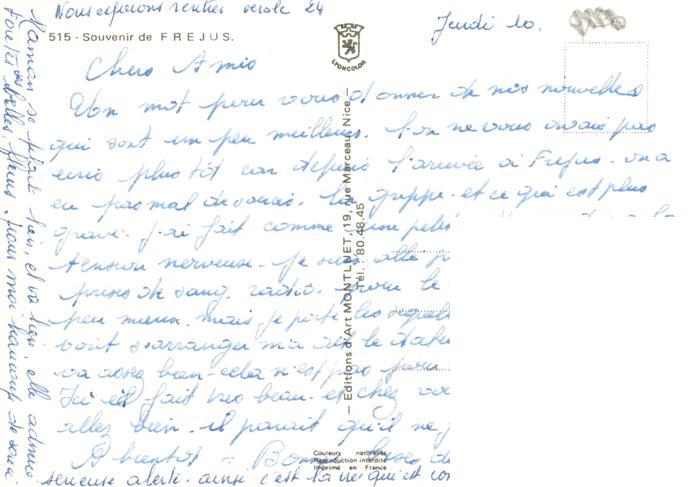 Nous espérons rentrer 24
Jeudi 10.
515 - Souvenir de FREJUS.
LYONCOLOR
Chers Amis
Un mot pour vous donner de nos nouvelles
qui sont un peu meilleures. On ne vous avais pas
écrit plus tôt car depuis l'arrivée à Frejus on a
eu pas mal de soucis. La grippe et ce qui est plus
grave. J'ai fait comme une
tension nerveuse. Je suis allé
prises de sang. radio.
peu mieux. mais je porte les
doit s'arranger m'a dit le
va assez bien. cela n'est pas
Ici il fait très beau. et chez
allez bien. il parait qu'il ne
A bientôt = Bonnes
sérieuse alerte. ainsi c'est la vie qui est
Maman se plait bien, et va bien, elle admire
toutes les belles fleurs. pour moi beaucoup de
— Editions d'Art MONTLUET, 19, rue Marceau, Nice —
Tél. : 80.48.45
Couleurs naturelles
Reproduction interdite
Imprimé en France